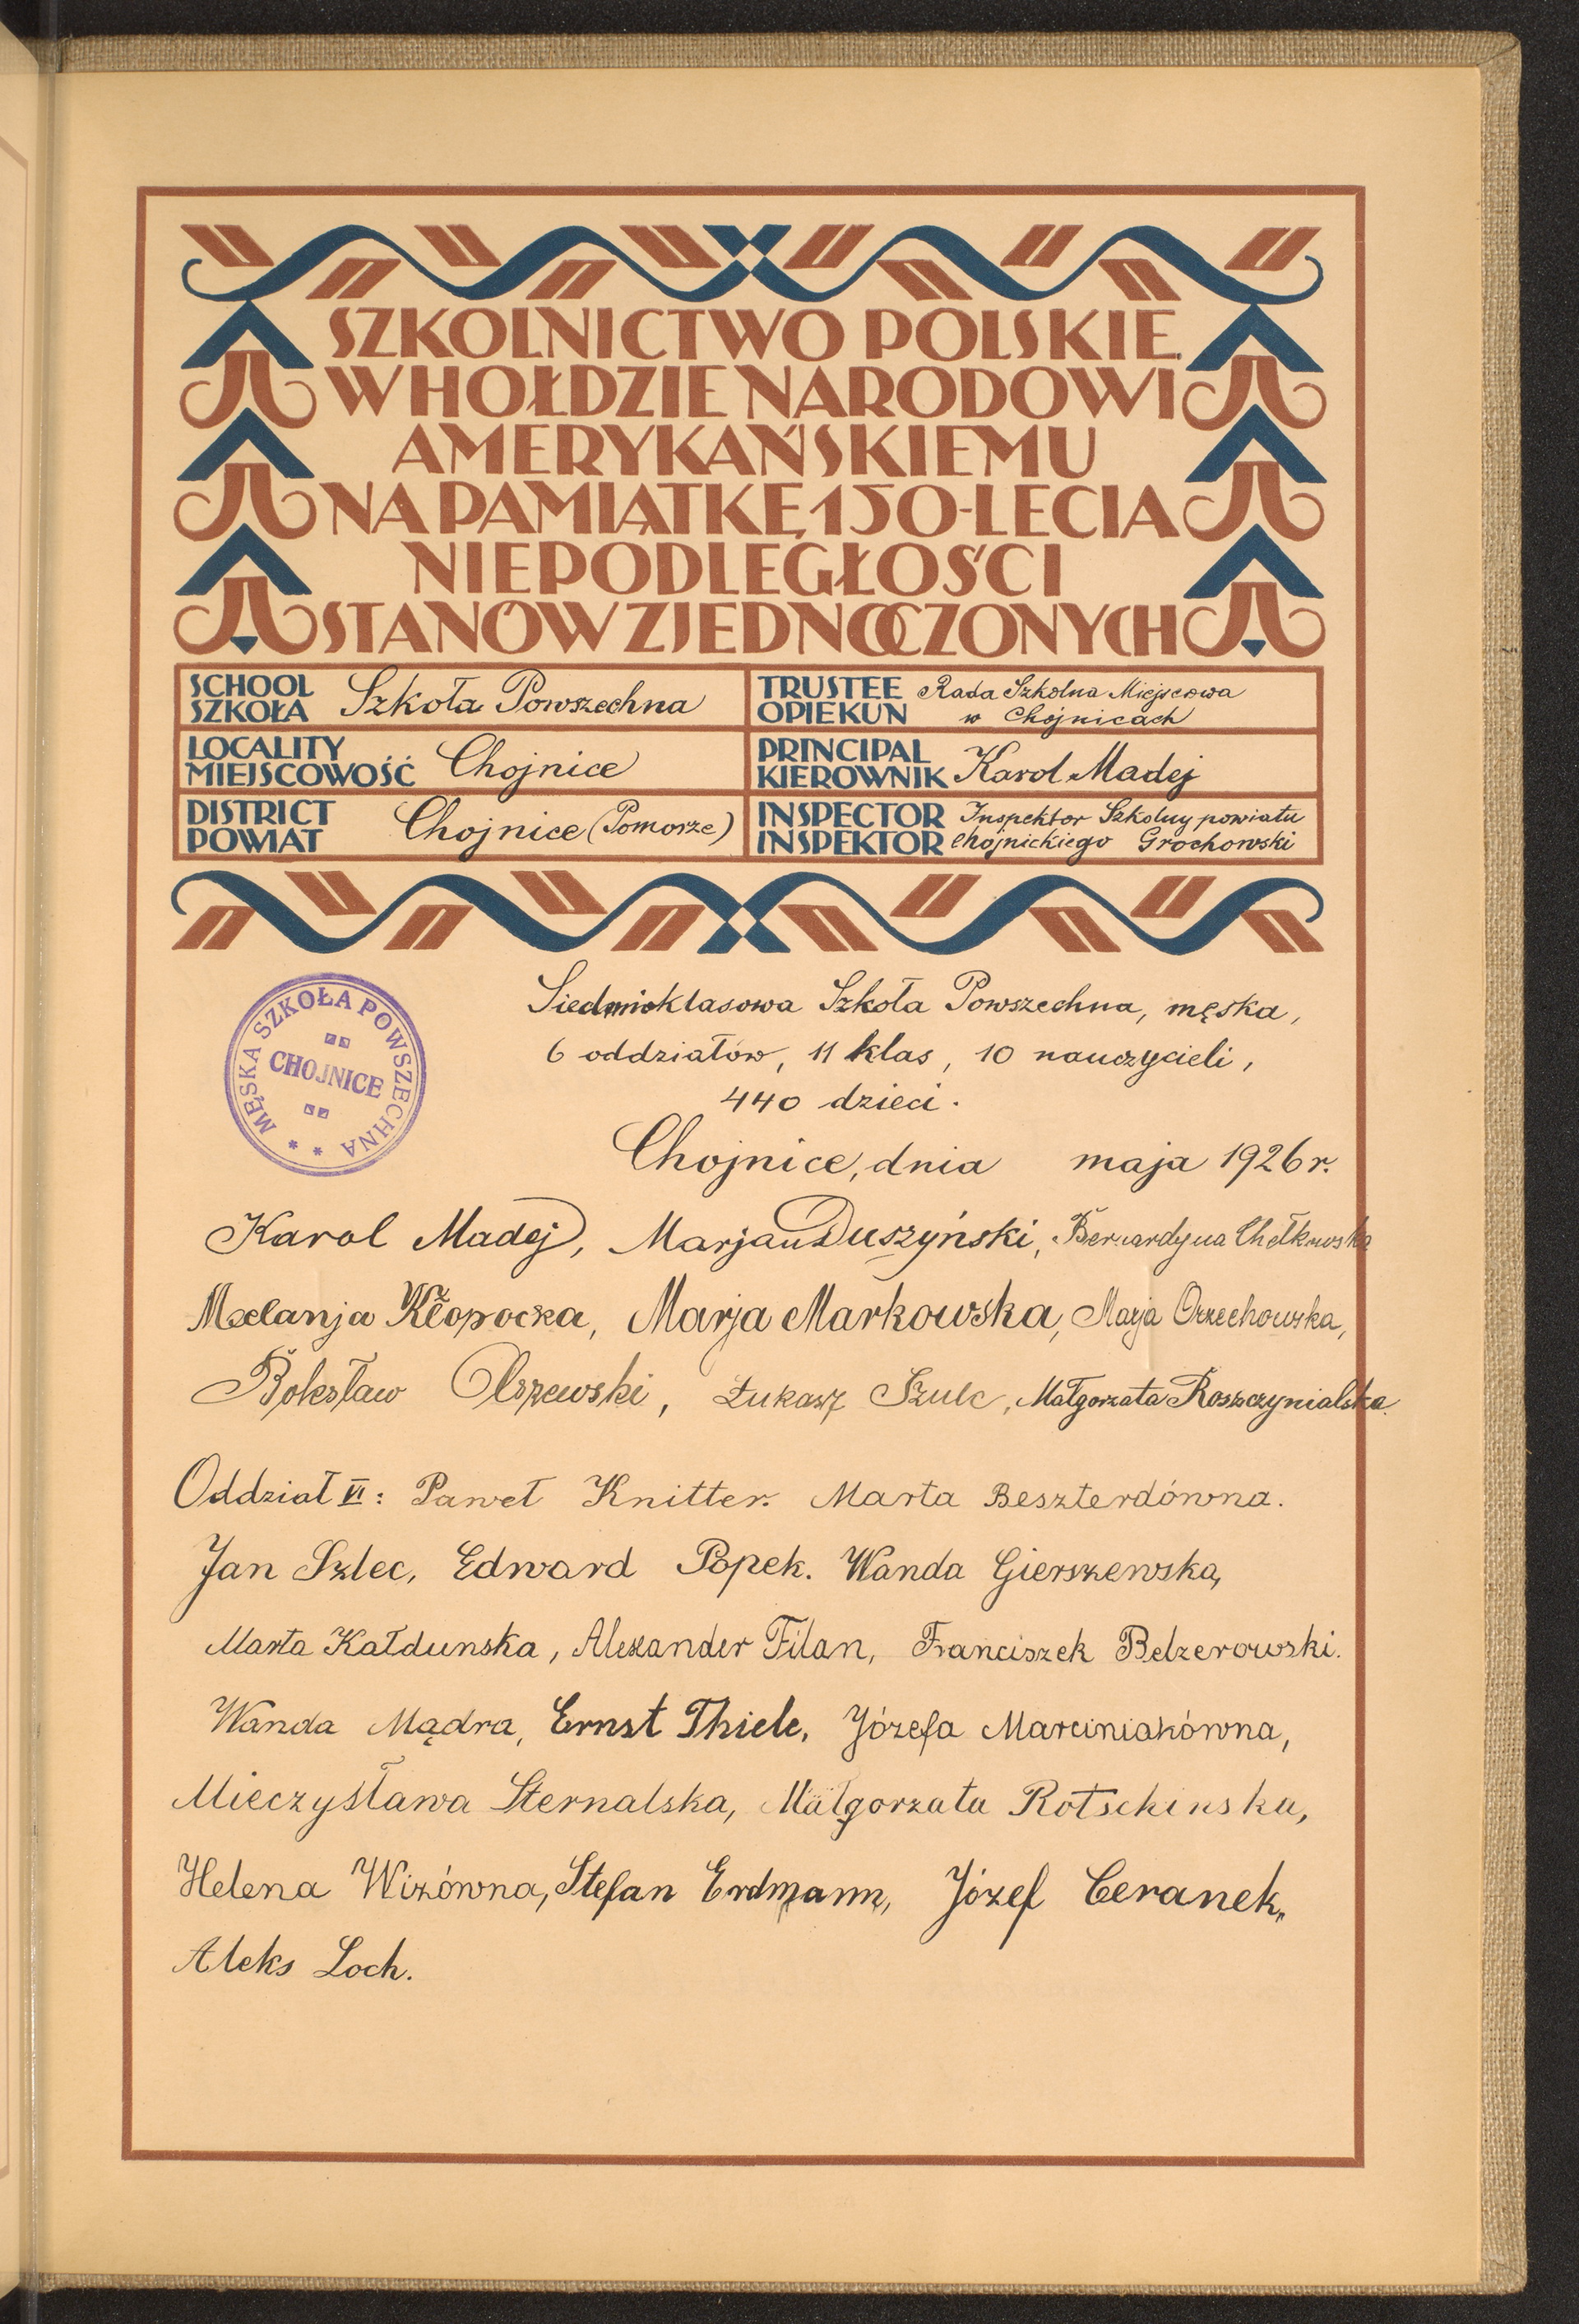 SZKOLNICTWO POLSKIE
W HOŁDZIE NARODOWI
AMERYKAŃSKIEMU
NA PAMIĄTKĘ 150-LECIA
NIEPODLEGŁOŚCI
STANÓW ZJEDNOCZONYCH
SCHOOL
SZKOŁA
Szkoła Powszechna
TRUSTEE
OPIEKUN
Rada Szkolna Miejscowa
w Chojnicach
LOCALITY
MIEJSCOWOŚĆ
Chojnice
PRINCIPAL
KIEROWNIK
Karol Madej
DISTRICT
POWIAT
Chojnice (Pomorze)
INSPECTOR
INSPEKTOR
Inspektor Szkolny powiatu
chojnickiego Grochowski
MĘSKA SZKOŁA POWSZECHNA * *
CHOJNICE
Siedmioklasowa Szkoła Powszechna, męska,
6 oddziałów, 11 klas, 10 nauczycieli,
440 dzieci.
Chojnice, dnia maja 1926 r.
Karol Madej, Marjan Duszyński, Bernardyna Chełkowska
Melanja Kłopocka, Marja Markowska, Marja Orzechowska,
Bolesław Olszewski, Łukasz Szulc, Małgorzata Roszczynialska.
Oddział VI: Paweł Knitter. Marta Beszterdówna.
Jan Szlec, Edward Popek. Wanda Gierszewska,
Marta Kałdunska, Alexander Filan, Franciszek Belzerowski.
Wanda Mądra, Ernst Thiele, Józefa Marciniakówna,
Mieczysława Sternalska, Małgorzata Rotschinska,
Helena Wizówna, Stefan Erdmann, Józef Ceranek,
Aleks Loch.